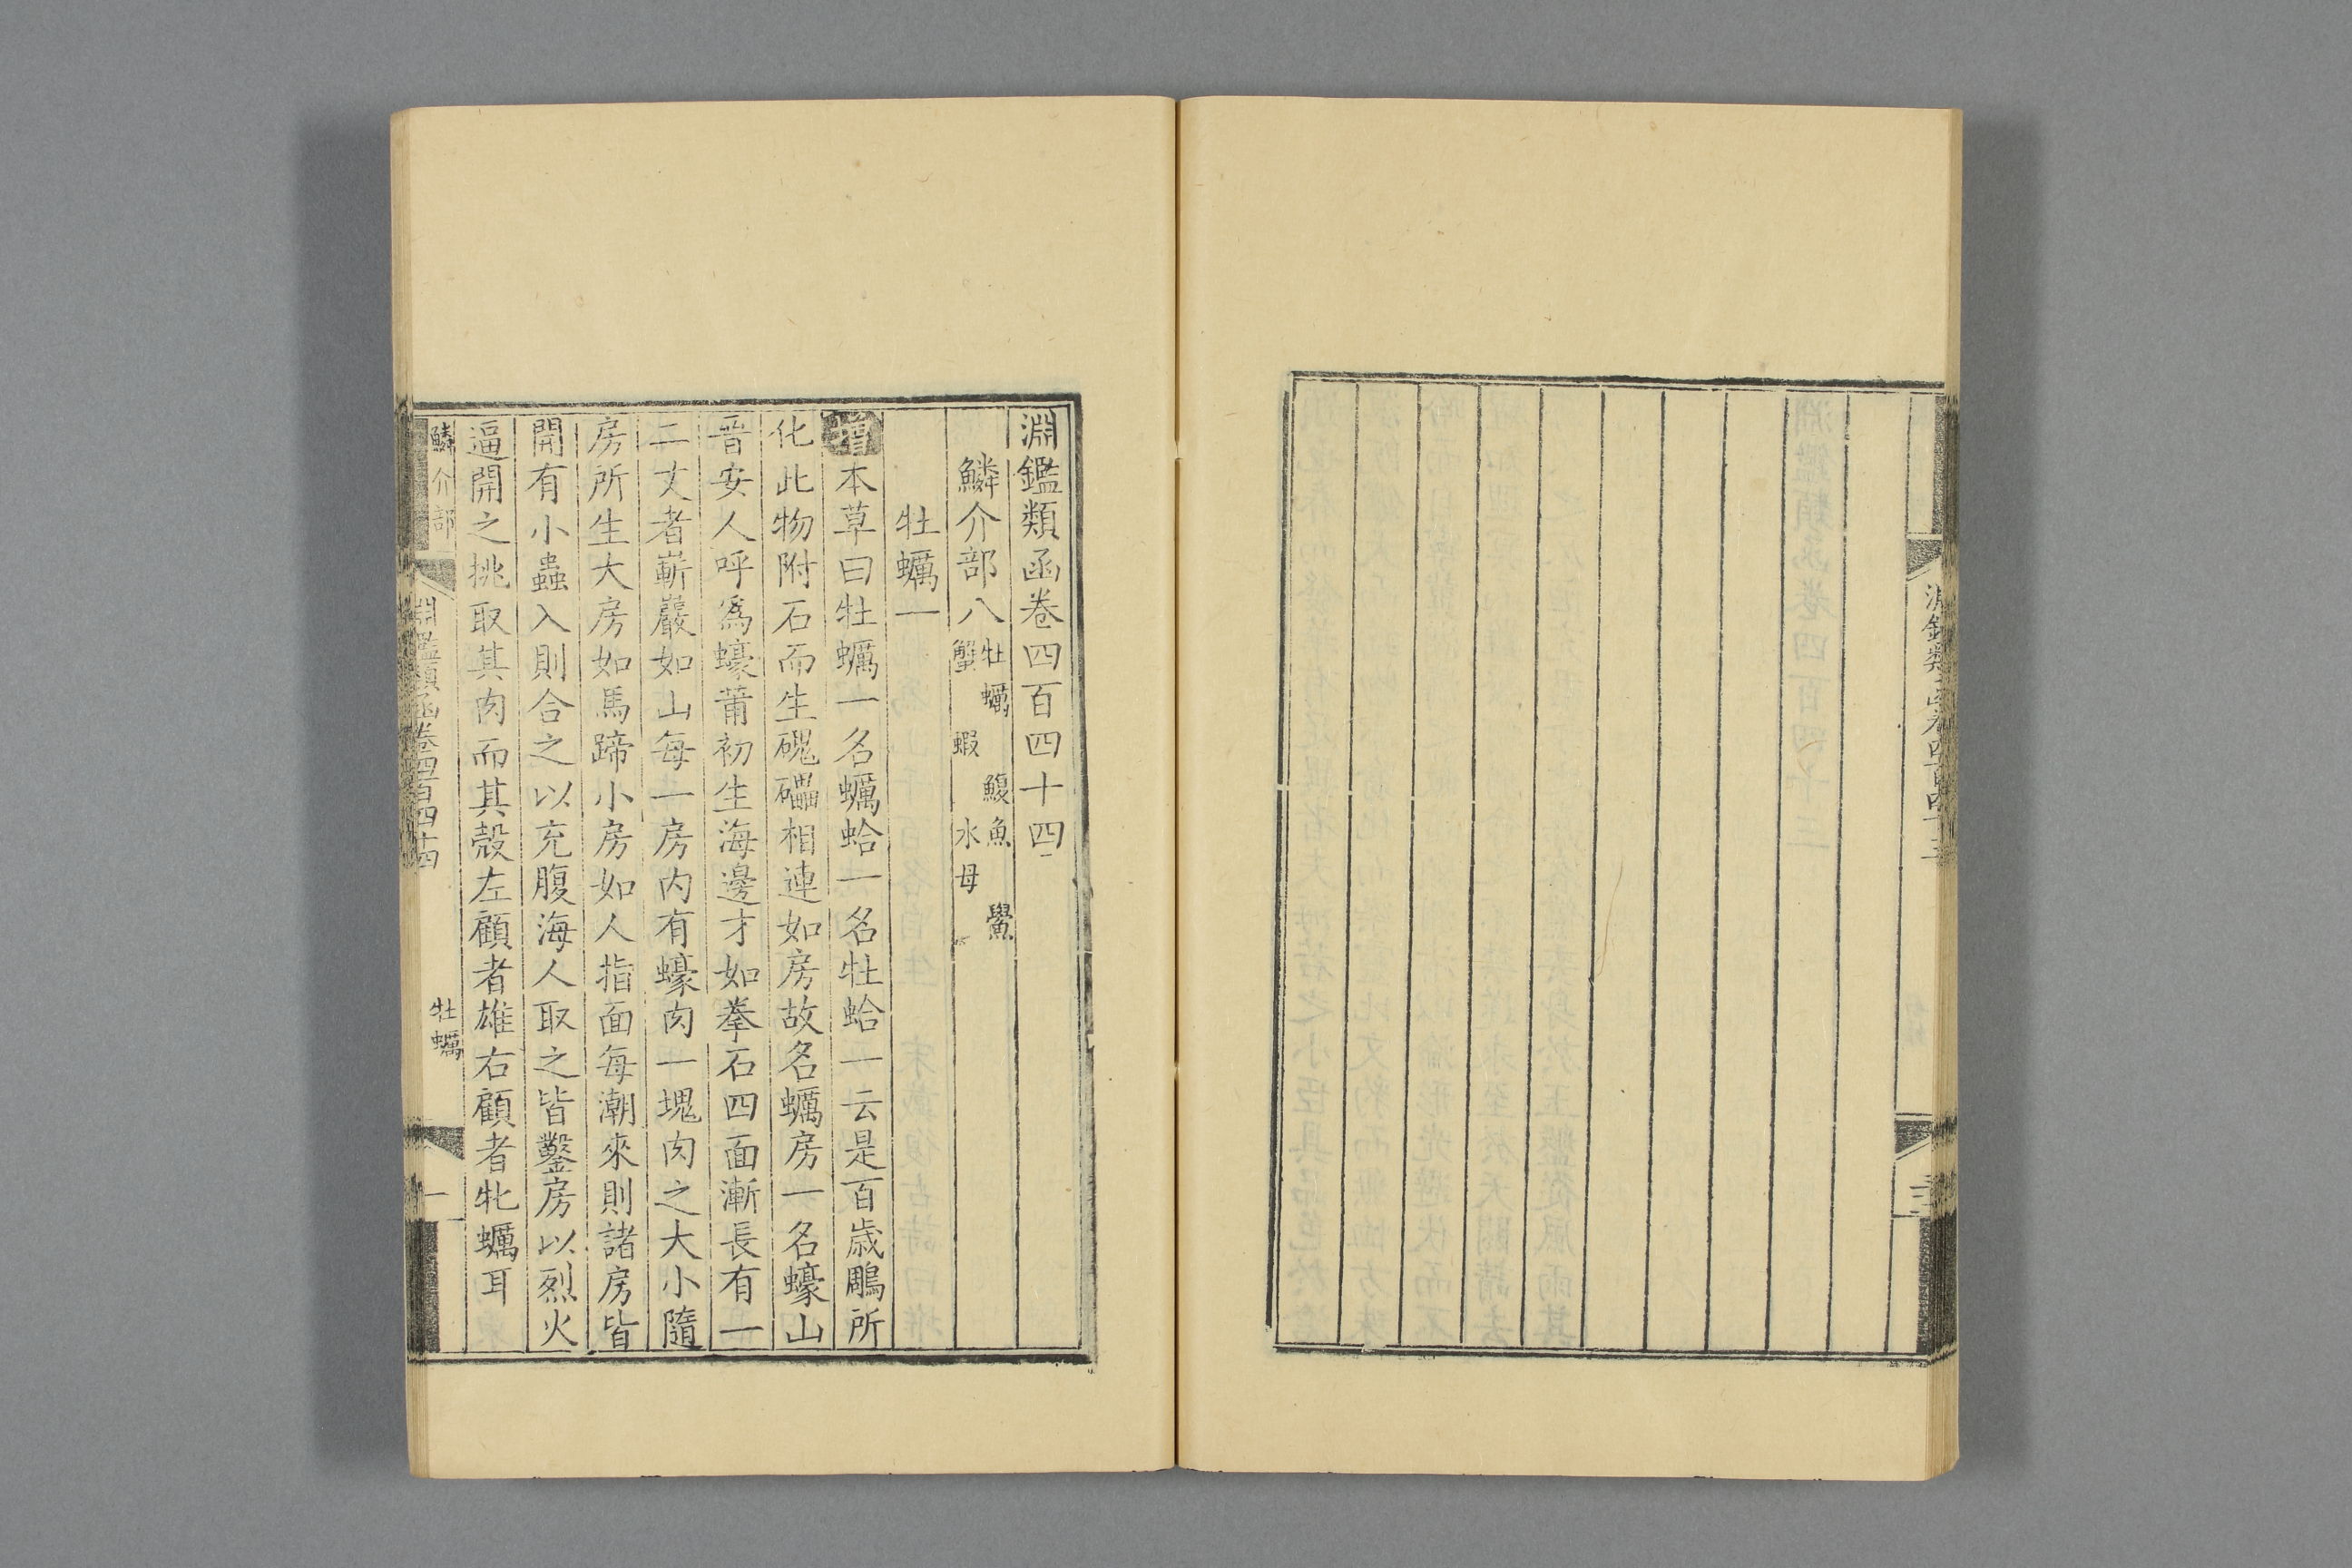 淵鑑類函卷四百四十四
鱗介部八 牡蠣 鰒魚 鱟
蟹 蝦 水母
牡蠣一
增本草曰牡蠣一名蠣蛤一名牡蛤一云是百歲鵰所
化此物附石而生磈礧相連如房故名蠣房一名蠔山
晋安人呼爲蠔莆初生海邊才如拳石四面漸長有一
二丈者嶄巖如山每一房内有蠔肉一塊肉之大小隨
房所生大房如馬蹄小房如人指面每潮來則諸房皆
開有小蟲入則合之以充腹海人取之皆鑿房以烈火
逼開之挑取其肉而其殼左顧者雄右顧者牝蠣耳
鱗介部
淵鑑類函卷四百四十四
牡蠣
一